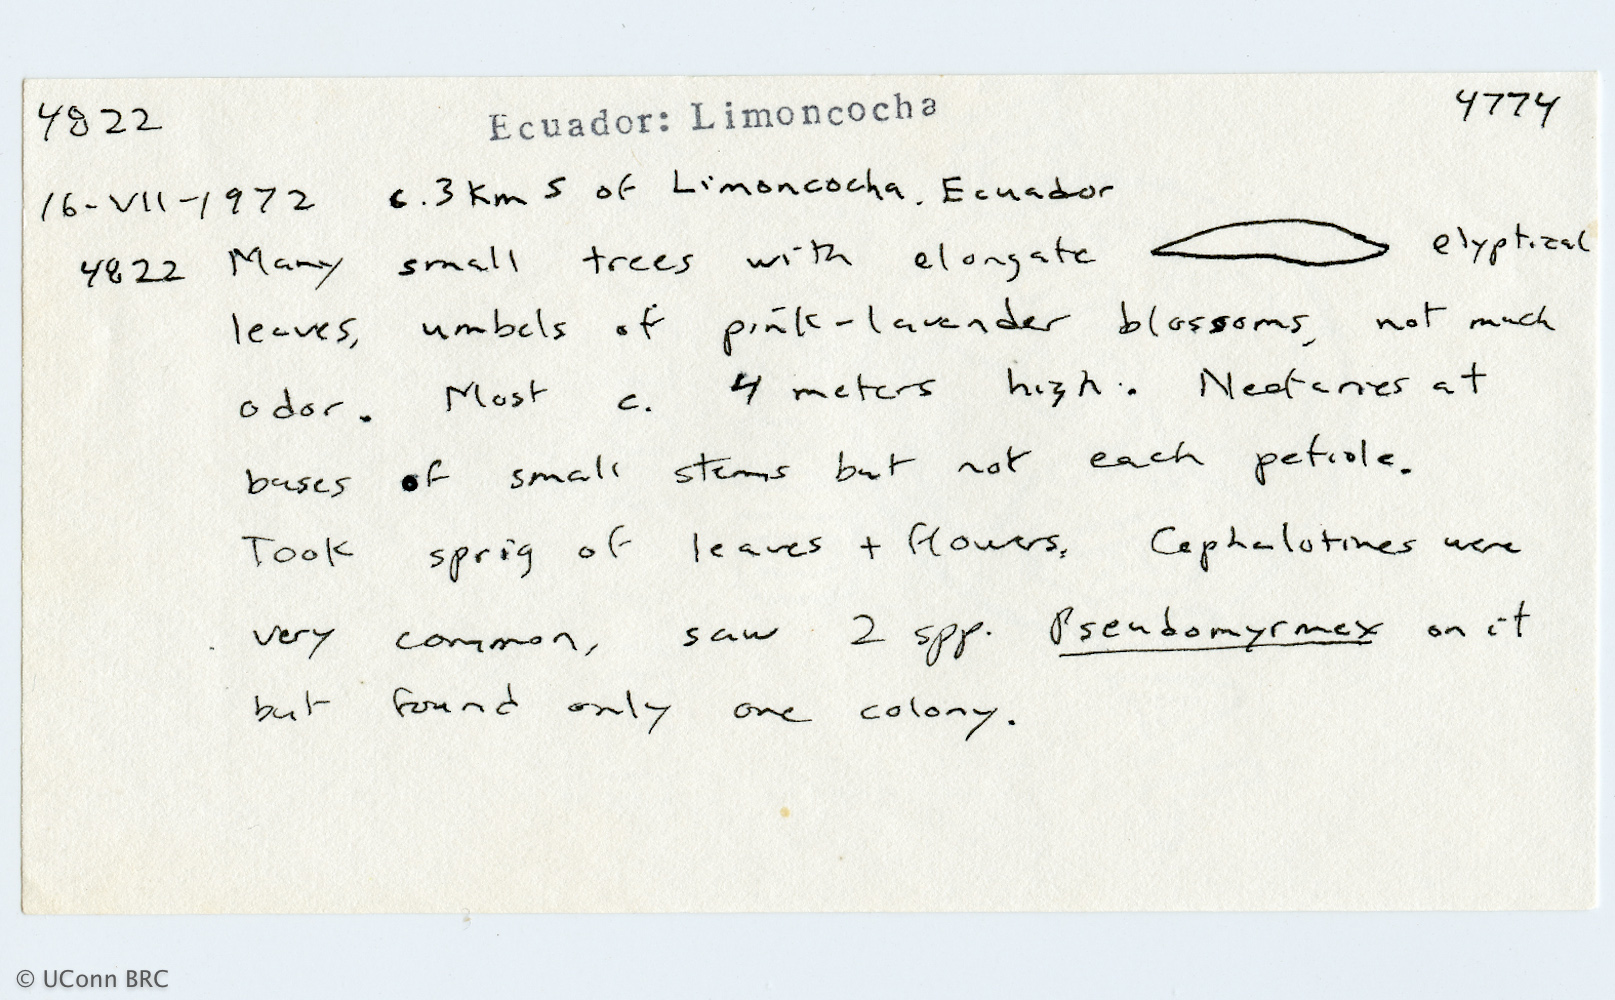 4822 Ecuador: Limoncocha 4774
16-VII-1972 c.3 km S of Limoncocha, Ecuador
4822 Many small trees with elongate elyptical
leaves, umbels of pink-lavender blossoms, not much
odor. Most c. 4 meters high. Nectaries at
bases of small stems but not each petiole.
Took sprig of leaves + flowers. Cephalotines were
very common, saw 2 spp. Pseudomyrmex on it
but found only one colony.
© UConn BRC